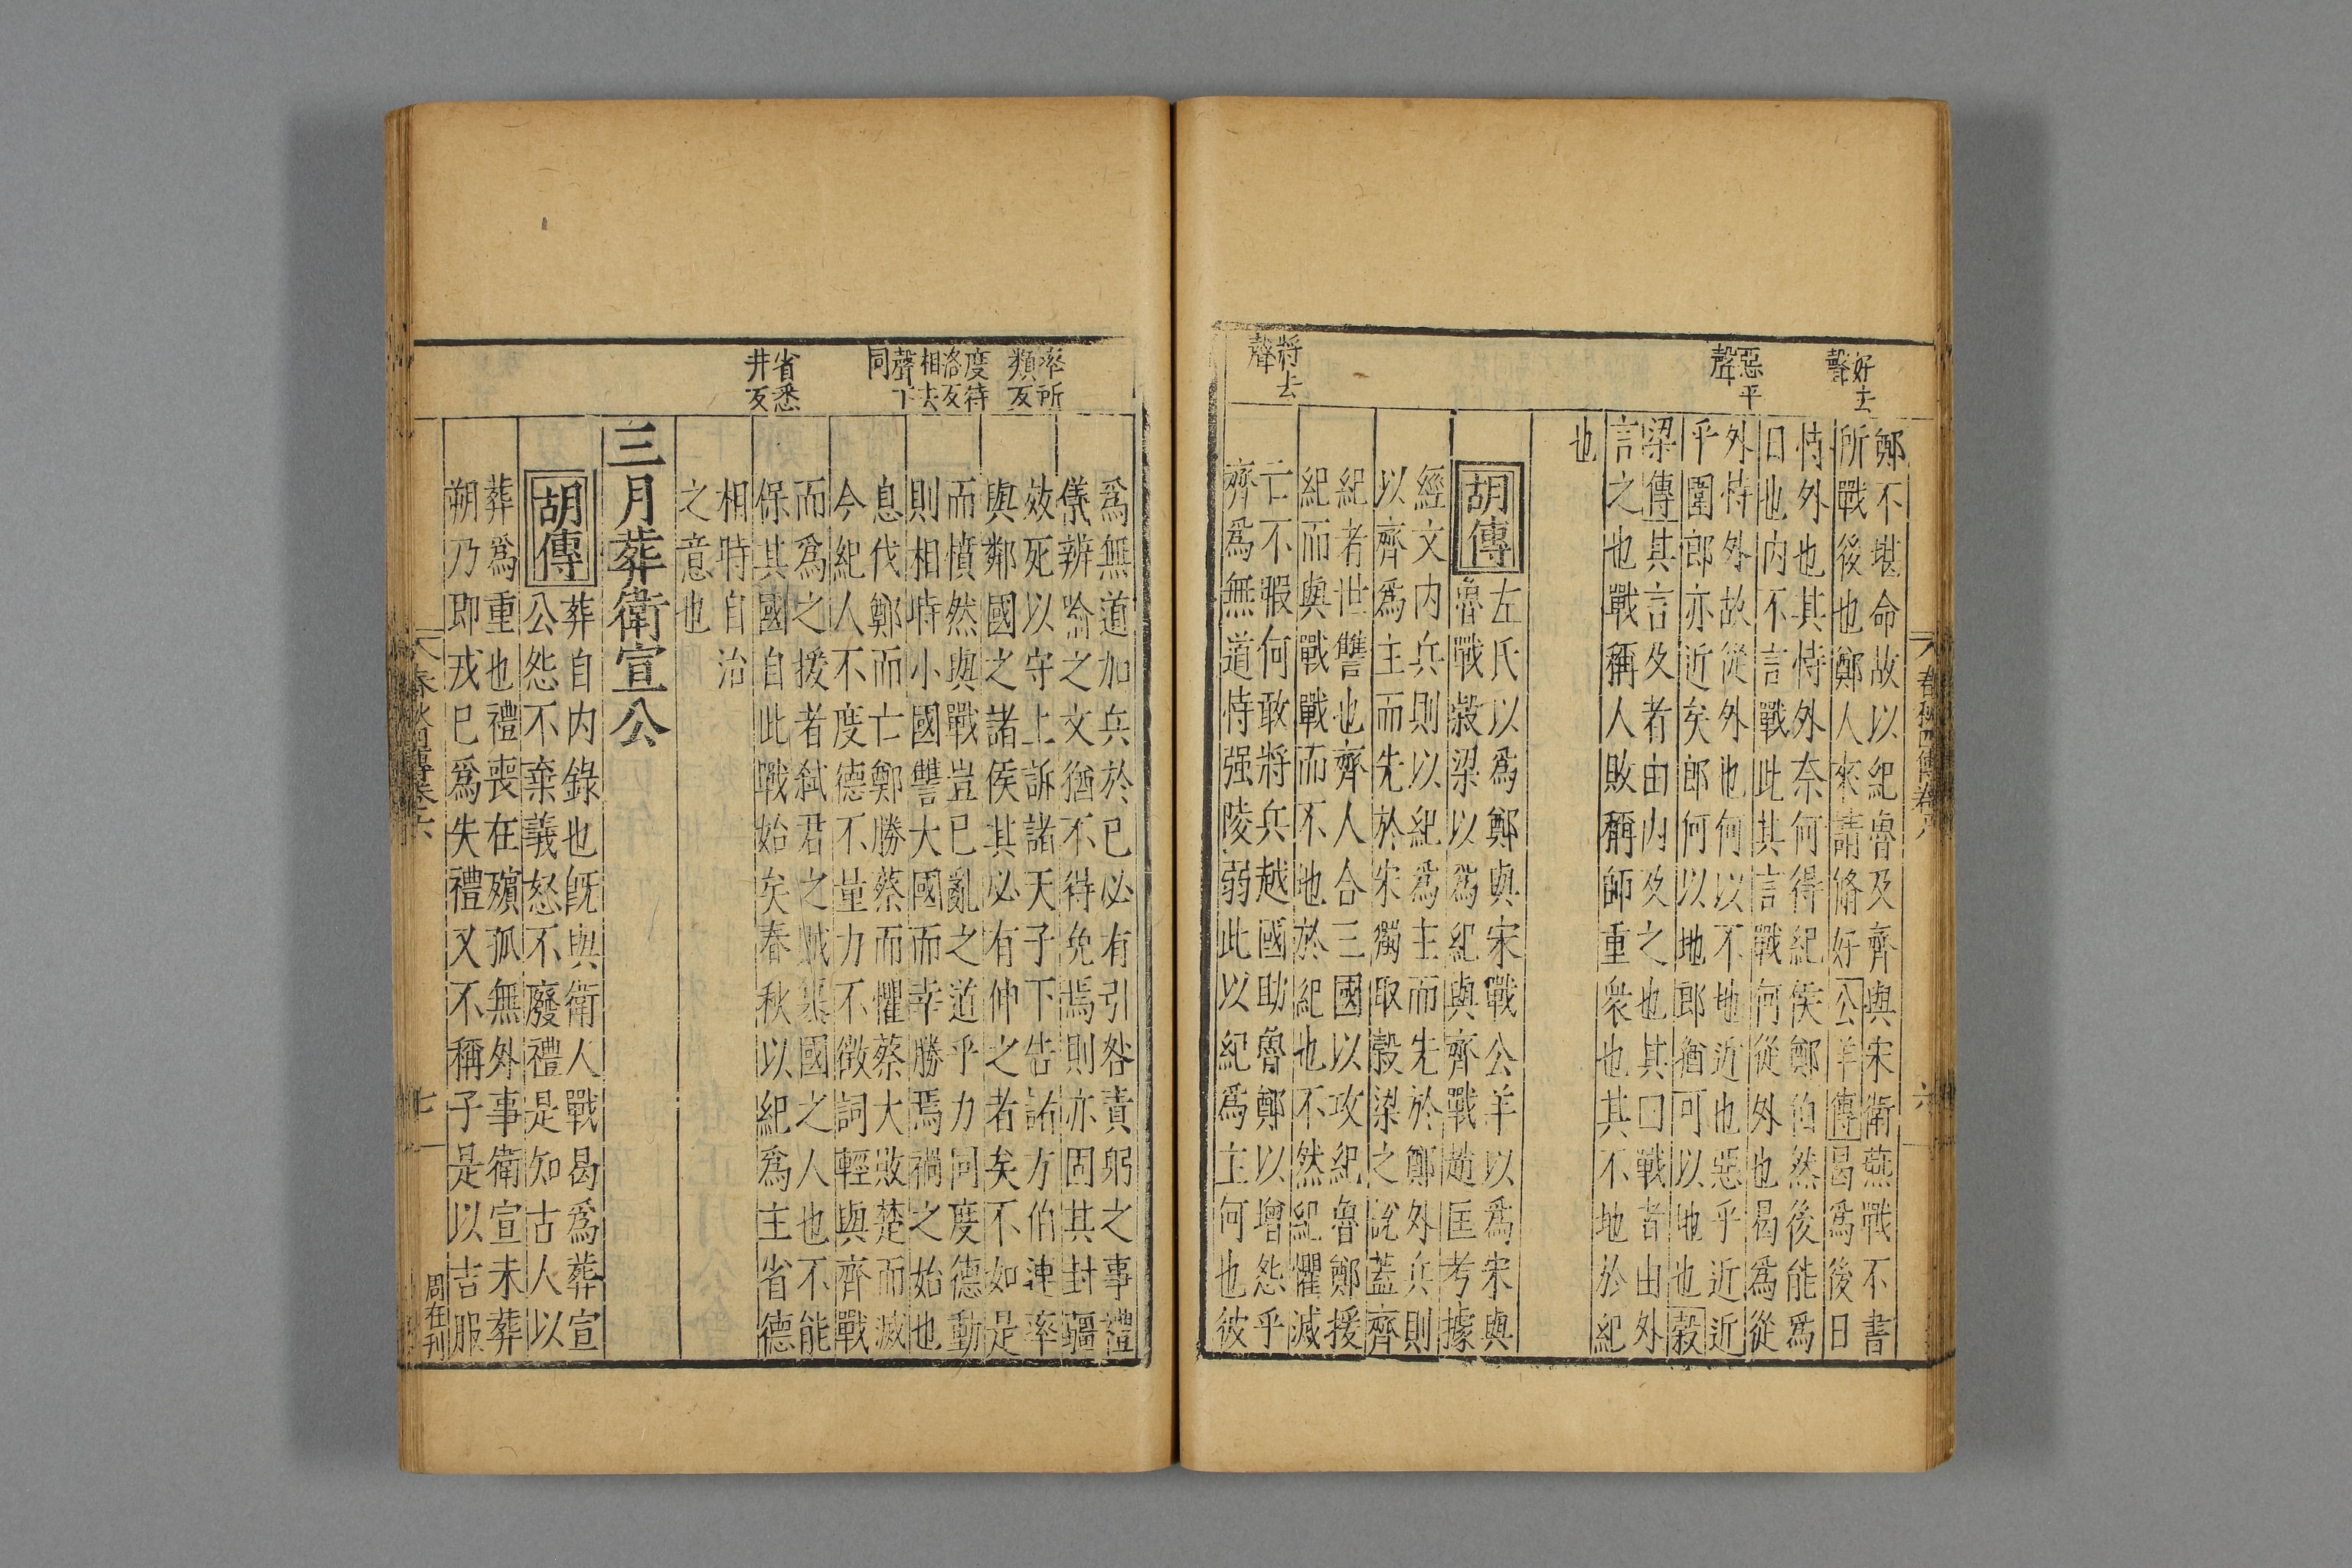 好去
聲
惡平
聲
將去
聲
鄭不堪命故以紀魯及齊與宋衛燕戰不書
所戰後也鄭人來請脩好公羊傳曷爲後日
恃外也其恃外奈何得紀侯鄭伯然後能爲
日也内不言戰此其言戰何從外也曷爲從
外恃外故從外也何以不地近也惡乎近近
乎圍郎亦近矣郎何以地郎猶可以地也穀
梁傳其言及者由内及之也其曰戰者由外
言之也戰稱人敗稱師重衆也其不地於紀
也
胡傳
左氏以爲鄭與宋戰公羊以爲宋與
魯戰穀梁以爲紀與齊戰趙匡考據
經文内兵則以紀爲主而先於鄭外兵則
以齊爲主而先於宋獨取穀梁之說蓋齊
紀者世讐也齊人合三國以攻紀魯鄭援
紀而與戰戰而不地於紀也不然紀懼滅
亡不暇何敢將兵越國助魯鄭以增怨乎
齊爲無道恃强陵弱此以紀爲主何也彼
春秋四傳卷六
六
率所
類反
度待
洛反
相去
聲下
同
省悉
井反
爲無道加兵於已必有引咎責躬之事禮
儀辨喻之文猶不得免焉則亦固其封疆
效死以守上訴諸天子下告諸方伯連率
與鄰國之諸侯其必有伸之者矣不如是
而憤然與戰豈已亂之道乎力同度德動
則相時小國讐大國而幸勝焉禍之始也
息伐鄭而亡鄭勝蔡而懼蔡大敗楚而滅
今紀人不度德不量力不徴詞輕與齊戰
而爲之援者弑君之賊簒國之人也不能
保其國自此戰始矣春秋以紀爲主省德
相時自治
之意也
三月葬衛宣公
胡傳
葬自内錄也旣與衛人戰曷爲葬宣
公怨不棄義怒不廢禮是知古人以
葬爲重也禮喪在殯孤無外事衛宣未葬
朔乃即戎已爲失禮又不稱子是以吉服
七
周在刊